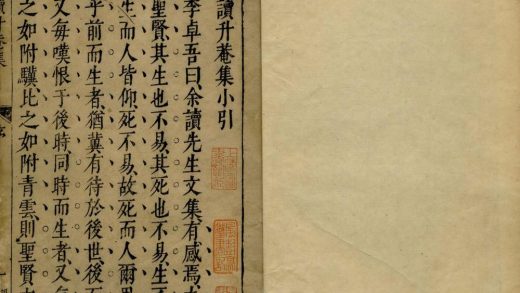 讀升菴集小引
李卓吾曰余讀先生文集有感焉
聖賢其生也不易其死也不易生
生而人皆仰死不易故死而人爾
乎前而生者猶冀有待於後世後
又每嘆恨于後時同時而生者又每
之如附驥比之如附青雲則聖賢
菴集